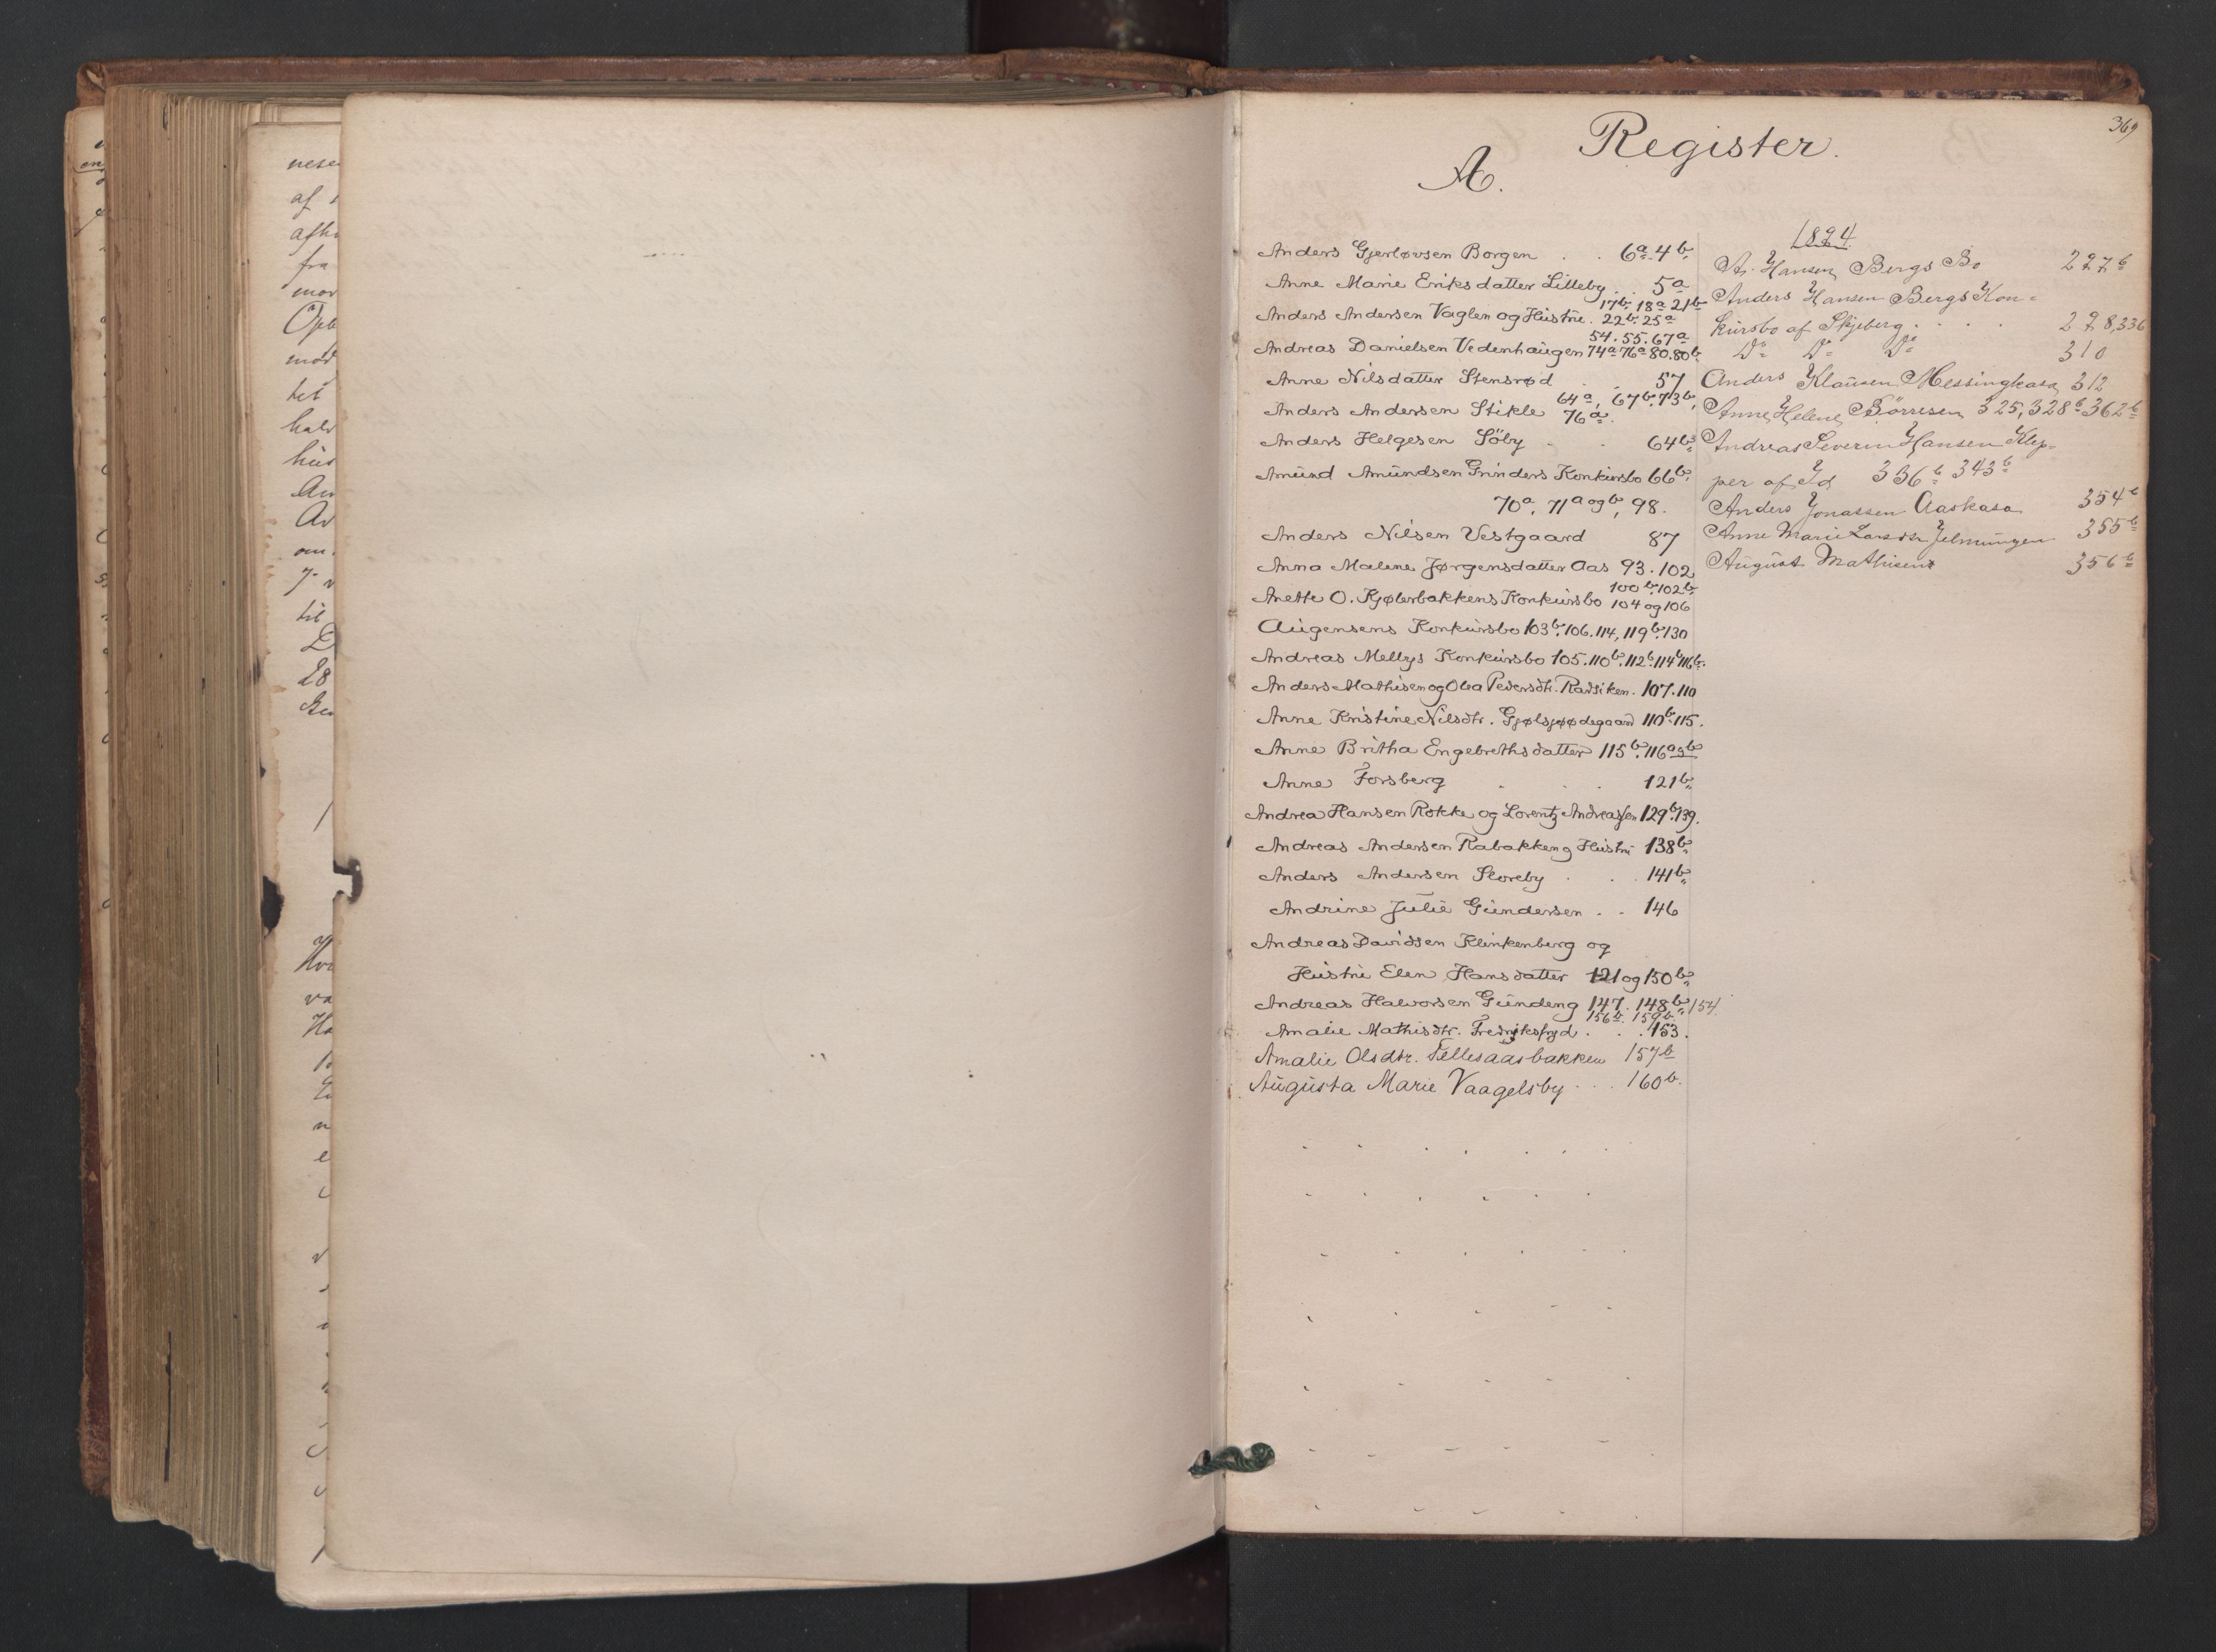 nese
af
afh
fra
mor
Opb
mod
tet
halv
hus
An
Av
om
7
til
D
28
369
Register.
A.
Anders Gjerløvsen Borgen . . 6a. 4b.
Anne Marie Eriksdatter Lilleby . . 5a
17b. 18a 21b
Anders Andersen Vaglen og Hustru. 22b. 25a
54. 55. 67a
Andreas Danielsen Vedenhaugen 74a 76a 80. 80b.
Anne Nilsdatter Stensrød . . 57
64a, 67b. 73b,
Anders Andersen Stikle 76a.
Anders Helgesen Söby . . 64b
Amund Amundsen Grinders Konkursbo 66b.
70a. 71a og b, 98.
Anders Nilsen Vestgaard 87
Anna Malene Jørgensdatter Aas 93. 102
100b. 102b.
Anette O. Kjølerbakkens Konkursbo 104 og 106
Augensens Konkursbo 103b. 106. 114, 119b. 130
Andreas Mellys Konkursbo 105. 110b. 112b. 114b 116b.
Anders Mathisen og Olea Pedersdtr. Radsiken. 107. 110
Anne Kristine Nilsdtr. Gjølsjøødegaard 110b. 115.
Anne Britha Engebrethsdatter 115b. 116a og b
Anne Forsberg . . . 121b.
Andrea Hansen Rokke og Lorentz Andreassen 129b. 139.
Andreas Andersen Rabakken og Hustru 138b.
Anders Andersen Skoreby . . 141b.
Andrine Julie Gundersen . . 146
Andreas Davidsen Klinkenberg og
Hustru Elen Hansdatter 121 og 150b.
Andreas Halvorsen Gundeng 147. 148b. 154.
156b. 159b.
Amalie Mathisdtr. Fredriksfryd . . 153.
Amalie Olsdtr. Tellesaasbakken 157b
Augusta Marie Vaagelsby . . . 160b.
1894.
A. Hansen Bergs Bo 297b
Anders Hansen Bergs Kon=
kursbo af Skjeberg . . . . 298, 336
Do Do Do 310
Anders Klausen Messingkasa 312
Anne Helene Börresen 325, 328b 362b
Andreas Severin Hansen Klep=
per af Id 336b 343b
Anders Jonassen Aaskasa 354b
Anne Marie Larsdtr Jelmungen 355b
August Mathisen 356b